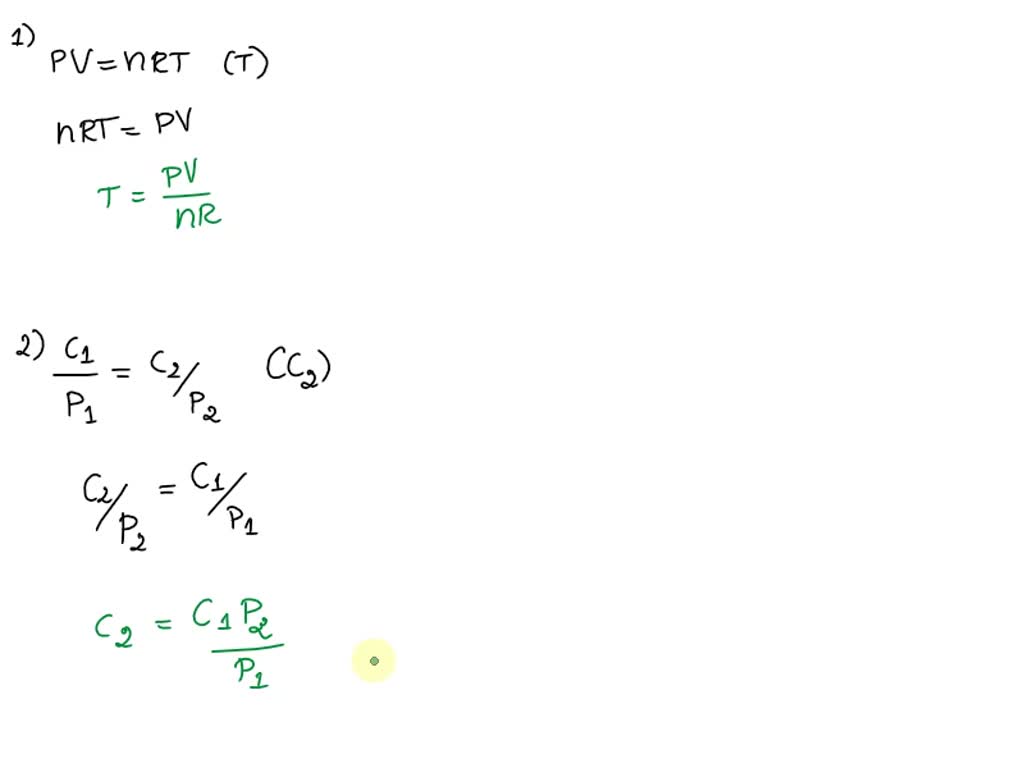 1)
PV = nRT (T)
nRT = PV
T = PV/nR
2) C1/P1 = C2/P2 (C2)
C2/P2 = C1/P1
C2 = C1P2/P1